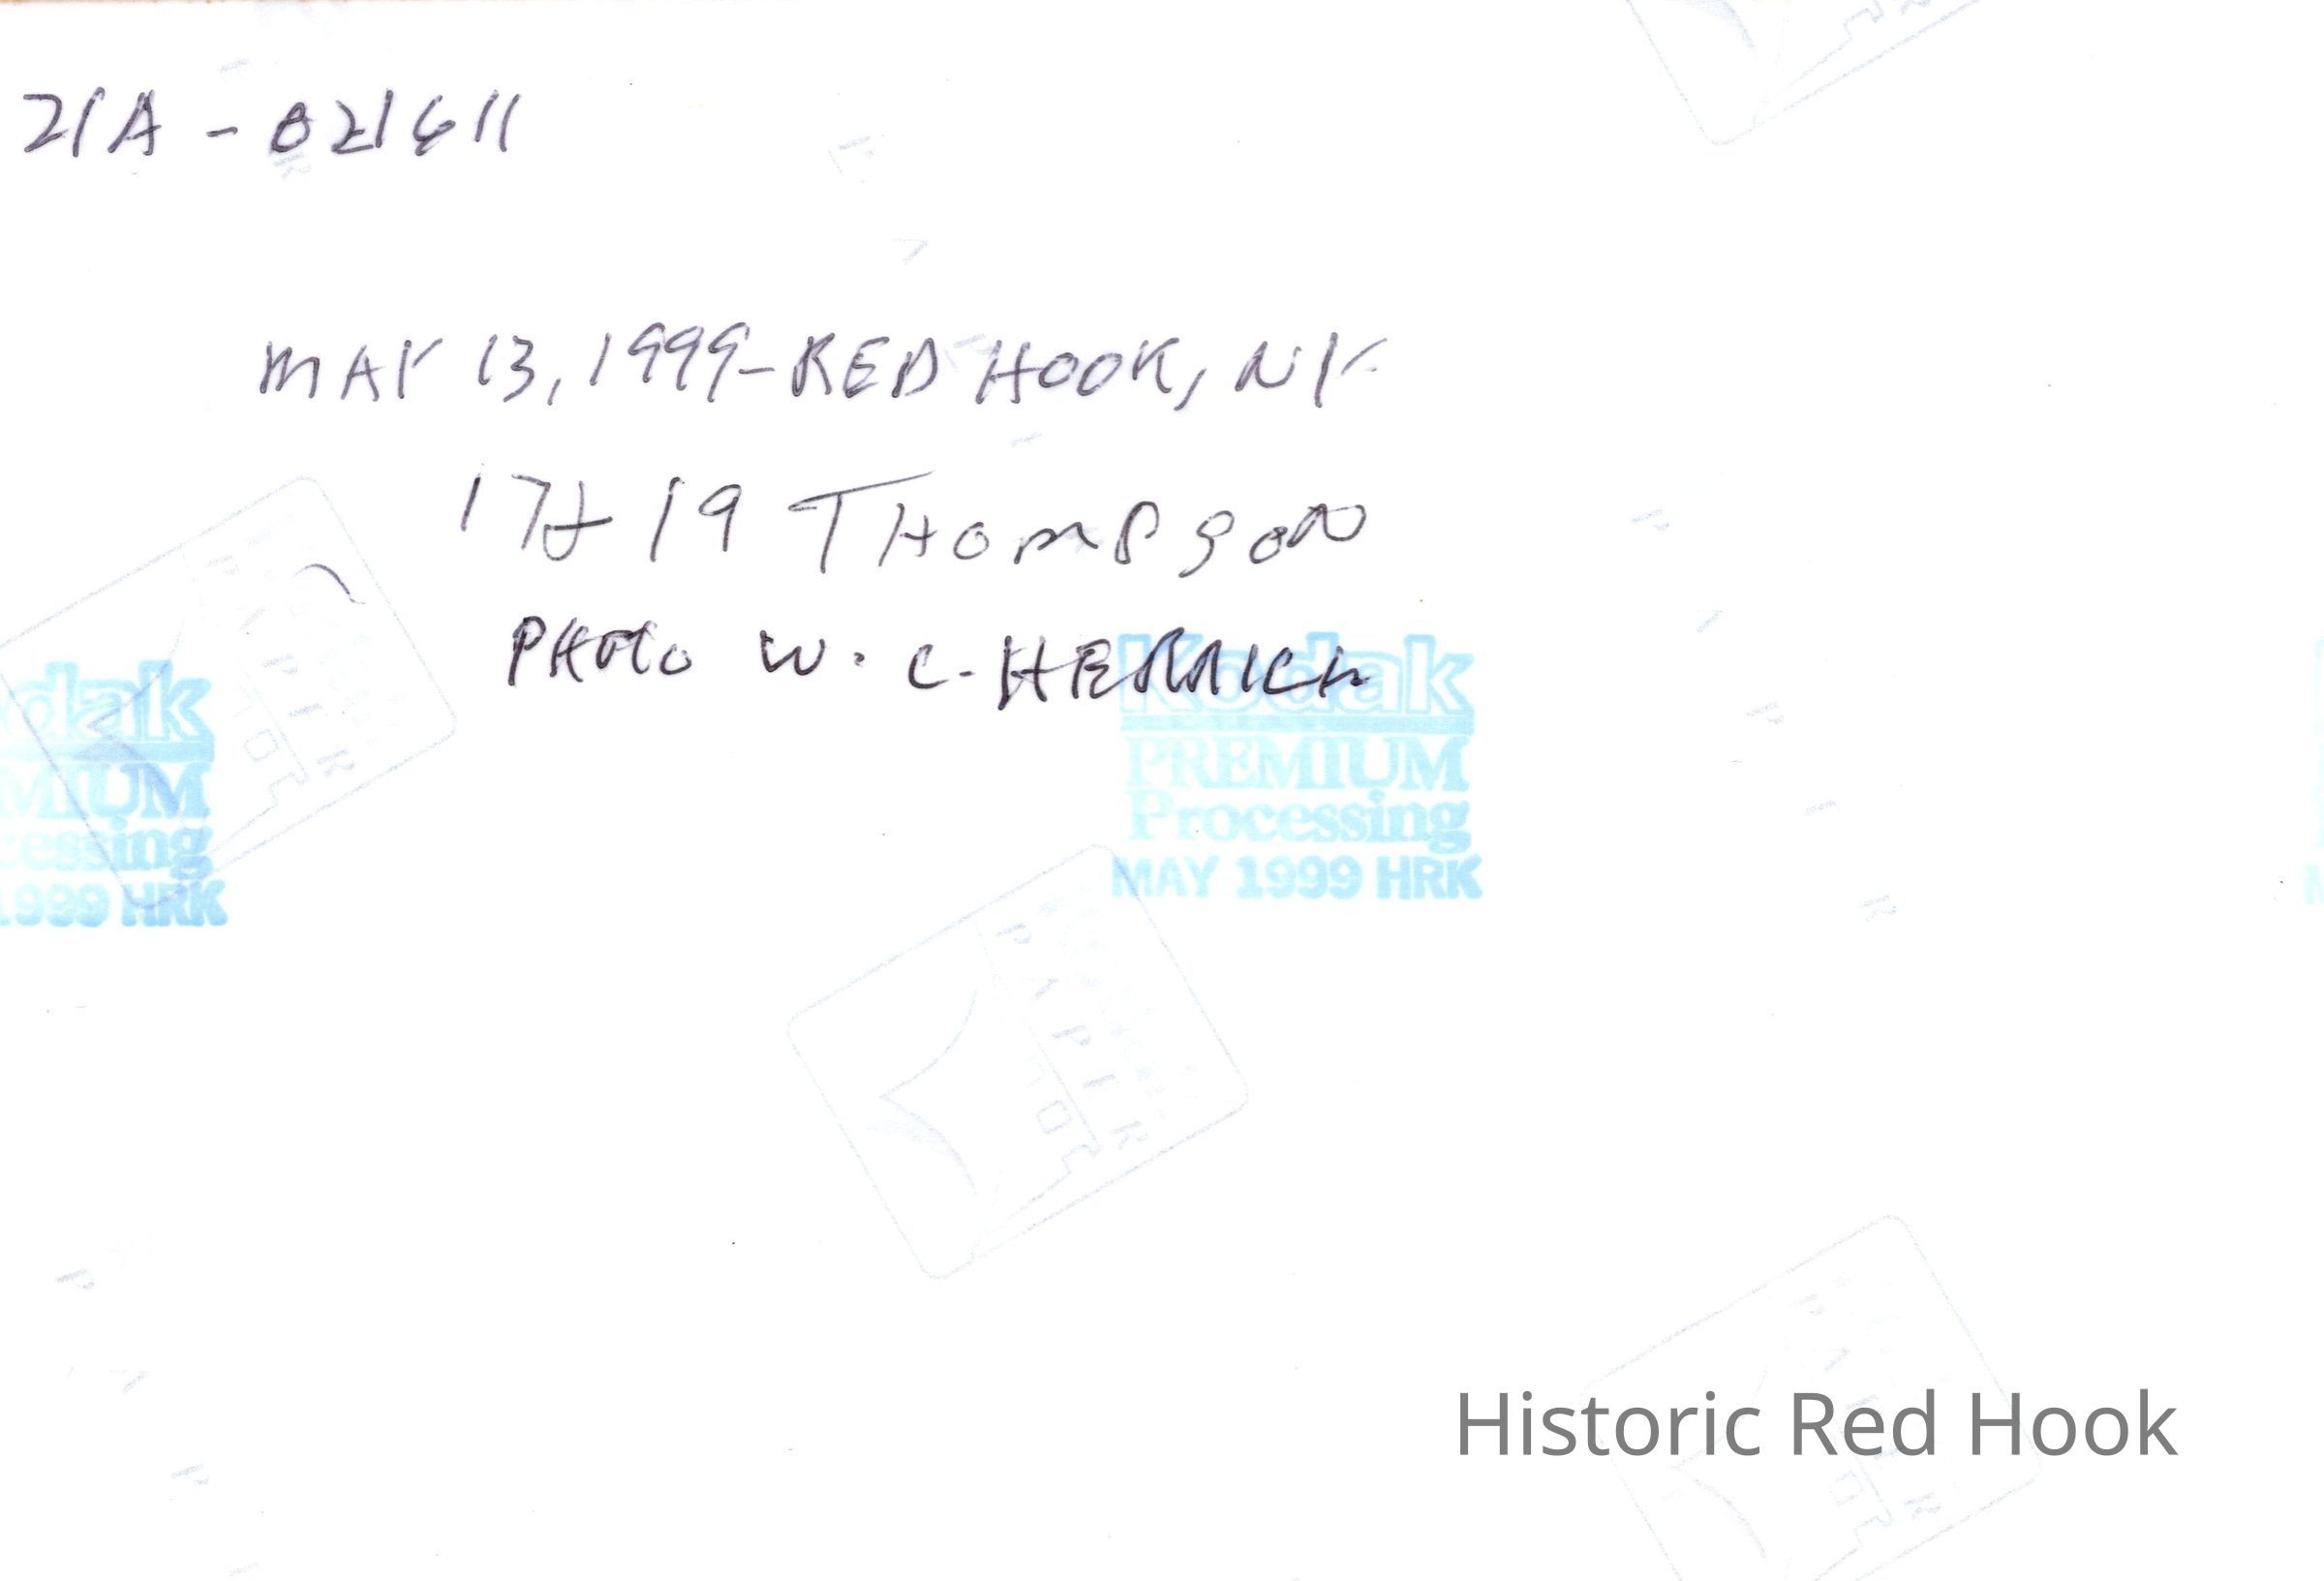 21A - 021611
MAY 13, 1999 - RED HOOK, NY.
17 + 19 THOMPSON
PHOTO W. C. HERRICK
Kodak
PREMIUM
Processing
MAY 1999 HRK
dak
MIUM
cessing
1999 HRK
PAPIR
PAPIR
Historic Red Hook